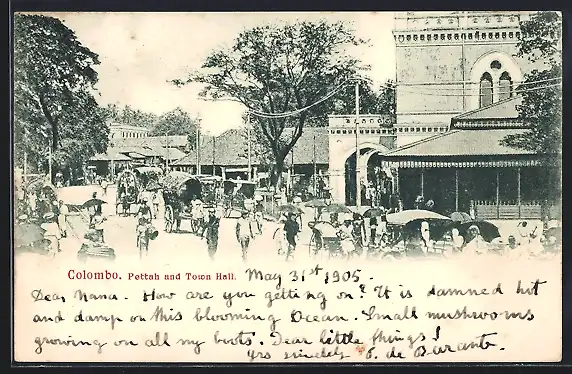 Colombo. Pettah and Town Hall. May 31st 1905.
Dear Nana. How are you getting on? It is damned hot
and damp on this blooming Ocean. Small mushrooms
growing on all my boots. Dear little things!
yrs sincerely de Barante.